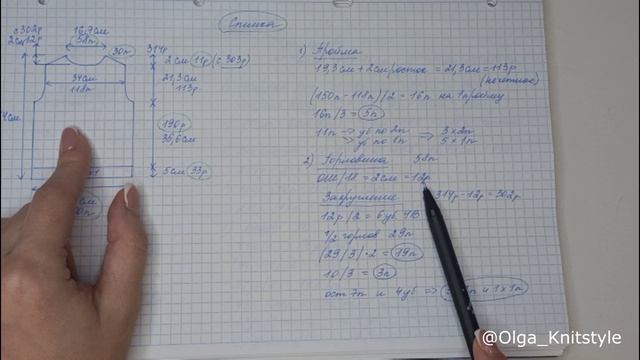 Спинка
с 302р
2см 12р
16,7см
58п
30п
314р
2см 11р (с 303р)
34см
118п
21,3см
113р
190р
35,6см
5см 33р
1) Пройма
19,3см + 2см росток = 21,3см = 113р
(нечетное)
(150п - 118п)/2 = 16п на 1 пройму
16п/3 = 5п
11п → уб по 2п ⇒ 3 x 2п
→ уб по 1п 5 x 1п
2) Горловина 58п
ОШ/18 = 2см = 12р
Закругление 314р - 12р = 302р
12р/2 = 6 уб ЧВ
1/2 горлов 29п
(29/3)·2 = 19п
10/3 = 3п
ост 7п и 4уб ⇒ и 1 x 1п
@Olga_Knitstyle